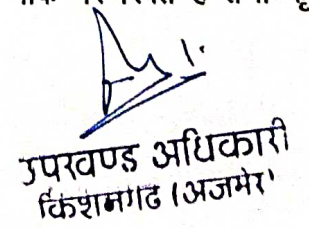 उपखण्ड अधिकारी
किशनगढ (अजमेर)